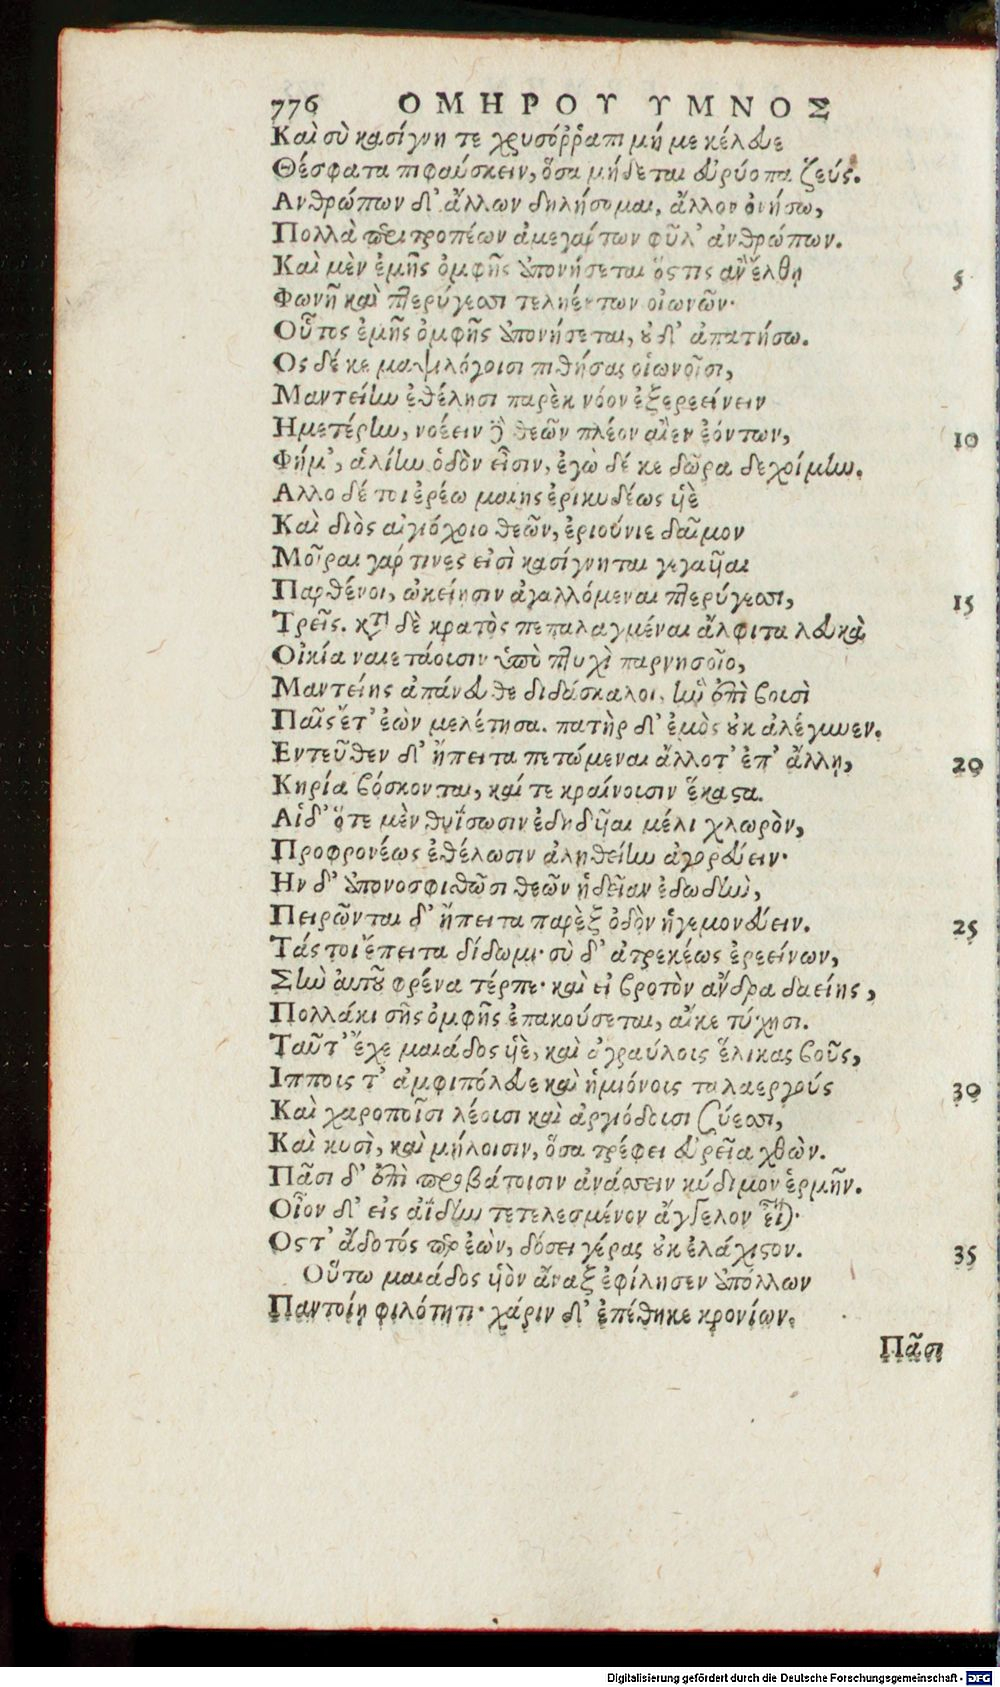 776 ΟΜΗΡΟΥ ΥΜΝΟΣ
Καὶ σὺ κασίγνητε χρυσόῤῥαπι μή με κέλευε
Θέσφατα πιφαύσκειν, ὅσα μήδεται εὐρύοπα ζεύς.
Ανθρώπων δ' ἄλλον δηλήσομαι, ἄλλον ὀνήσω,
Πολλὰ περιτροπέων ἀμεγάρτων φῦλ' ἀνθρώπων.
Καὶ μὲν ἐμῆς ὀμφῆς ἀπονήσεται ὅς τις ἂν ἔλθῃ 5
Φωνῇ καὶ πτερύγεσσι τεληέντων οἰωνῶν·
Οὗτος ἐμῆς ὀμφῆς ἀπονήσεται, οὐδ' ἀπατήσω.
Ος δέ κε μαψιλόγοισι πιθήσας οἰωνοῖσι,
Μαντείην ἐθέλησι παρὲκ νόον ἐξερεείνειν
Ημετέρην, νοέειν δὲ θεῶν πλέον αἰὲν ἐόντων, 10
Φήμ', ἁλίην ὁδὸν εἶσιν, ἐγὼ δέ κε δῶρα δεχοίμην.
Αλλο δέ τοι ἐρέω μαίης ἐρικυδέως υἱὲ
Καὶ διὸς αἰγιόχοιο θεῶν, ἐριούνιε δαῖμον
Μοῖραι γάρ τινες εἰσὶ κασίγνηται γεγαυῖαι
Παρθένοι, ὠκείησιν ἀγαλλόμεναι πτερύγεσσι, 15
Τρεῖς. κατὰ δὲ κρατὸς πεπαλαγμέναι ἄλφιτα λευκὰ
Οἰκία ναιετάουσιν ὑπὸ πτυχὶ παρνησοῖο,
Μαντείης ἀπάνευθε διδάσκαλοι, ἣν ἐπὶ βουσὶ
Παῖς ἔτ' ἐὼν μελέτησα. πατὴρ δ' ἐμὸς οὐκ ἀλέγυνεν.
Εντεῦθεν δ' ἤπειτα πετώμεναι ἄλλοτ' ἐπ' ἄλλῃ, 20
Κηρία βόσκονται, καί τε κραίνουσιν ἕκαστα.
Αἱ δ' ὅτε μὲν θυΐσωσιν ἐδηδυῖαι μέλι χλωρὸν,
Προφρονέως ἐθέλωσιν ἀληθείην ἀγορεύειν·
Ην δ' ἀπονοσφιθῶσι θεῶν ἡδεῖαν ἐδωδὴν,
Πειρῶνται δ' ἤπειτα παρὲξ ὁδὸν ἡγεμονεύειν. 25
Τάς τοι ἔπειτα δίδωμι· σὺ δ' ἀτρεκέως ἐρεείνων,
Σὴν αὐτοῦ φρένα τέρπε· καὶ εἰ βροτὸν ἄνδρα δαείης,
Πολλάκι σῆς ὀμφῆς ἐπακούσεται, αἴκε τύχησι.
Ταῦτ' ἔχε μαιάδος υἱὲ, καὶ ἀγραύλοις ἕλικας βοῦς,
Ιπποις τ' ἀμφιπόλευε καὶ ἡμιόνοις ταλαεργούς 30
Καὶ χαροποῖσι λέουσι καὶ ἀργιόδουσι σύεσσι,
Καὶ κυσὶ, καὶ μήλοισιν, ὅσα τρέφει εὐρεῖα χθὼν.
Πᾶσι δ' ἐπὶ προβάτοισιν ἀνάσσειν κύδιμον ἑρμῆν.
Οἶον δ' εἰς ἀΐδην τετελεσμένον ἄγγελον εἶναι·
Ος τ' ἄδοτός περ ἐὼν, δόσει γέρας οὐκ ἐλάχιστον. 35
Οὕτω μαιάδος υἱὸν ἄναξ ἐφίλησεν ἀπόλλων
Παντοίῃ φιλότητι· χάριν δ' ἐπέθηκε κρονίων.
Πᾶσι
Digitalisierung gefördert durch die Deutsche Forschungsgemeinschaft - DFG